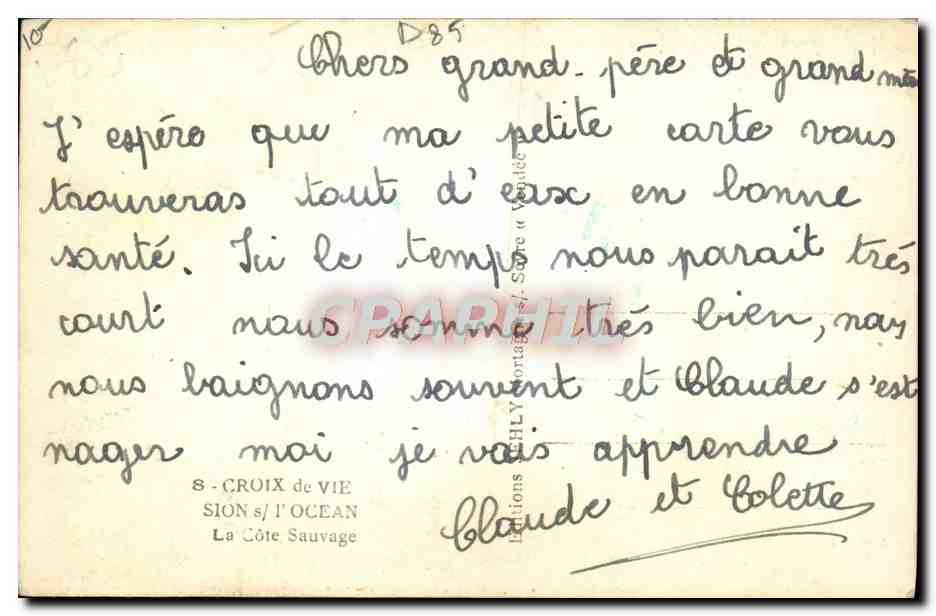 10
D85
Chers grand-père et grand mère
J'espére que ma petite carte vous
trouveras tout d'eax en bonne
santé. Ici le temps nous parait trés
court nous somme trés bien, nous
nous baignons souvent et Claude s'est
nager moi je vais apprendre
Claude et Colette
8 - CROIX de VIE
SION s/ l'OCEAN
La Côte Sauvage
Editions JEHLY Mortagne s/. Sèvre « Vendée
CPAPHIL